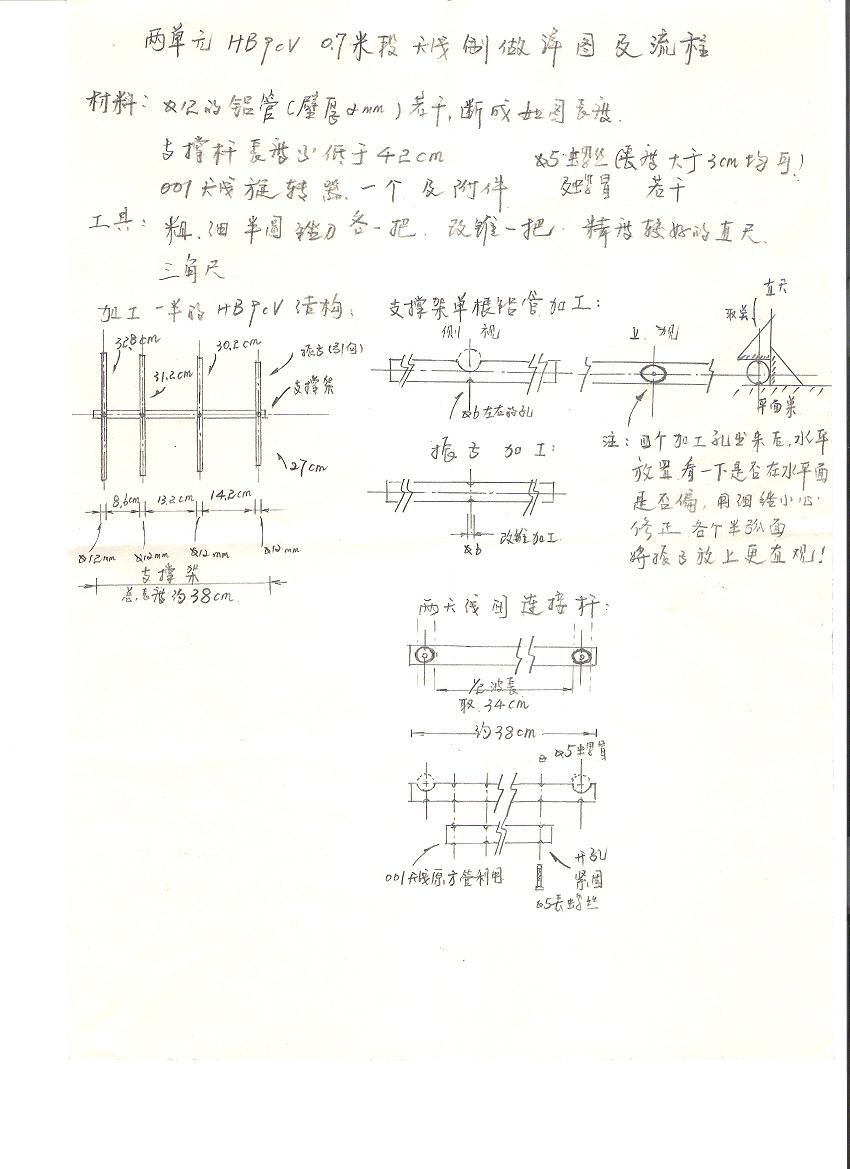 两单元 HB9CV 0.7米段 天线 制做 详图 及 流程
材料: φ12的铝管(壁厚 mm)若干,断成如图长度.
支撑杆长度少低于42cm
φ5螺丝(长度大于3cm均可)
001天线旋转器.一个 及附件
及螺冒 若干
工具: 粗.细半圆锉刀各一把. 改锥一把. 精度较好的直尺.
三角尺
加工一半的HB9CV结构:
32.8cm
31.2cm
30.2cm
振子(引向)
支撑架
27cm
8.6cm
13.2cm
14.2cm
φ12mm
φ12mm
φ12mm
φ12mm
支撑架
总长度约38cm.
支撑架单根铝管加工:
侧 视
φ6左右的孔
视
取盖
直尺
平面桌
振子 加工:
φ6
改锥加工.
注: 四个加工孔出来后,水平
放置看一下是否在水平面
是否偏,用细锉小心
修正 各个半弧面
将振子放上更直观!
两天线间 连接杆:
1/2波长
取 34cm
约38cm
φ5螺冒
001天线原方管利用
开孔
紧固
φ5长螺丝